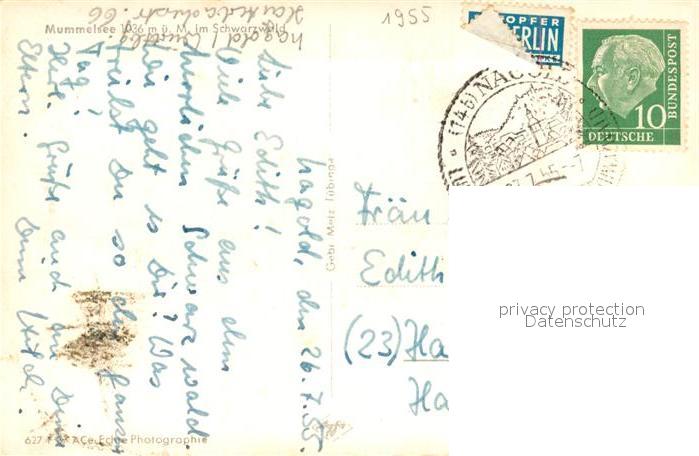 1955
Mummelsee 1036 m ü. M. im Schwarzwald
Nagold, den 26.7.55.
Liebe Edith!
Viele Grüße aus dem
herrlichen Schwarzwald.
Wie geht es Dir? Was
treibst Du so den ganzen
Tag?
Herzl. Grüße auch an Deine
Eltern.
Deine
Gebr. Metz Tübingen
Echte Photographie
627
NOTOPFER
BERLIN
10
DEUTSCHE
BUNDESPOST
(14b) NAGOLD
Fräu
Edith
(23) Ha
Ha
privacy protection
Datenschutz